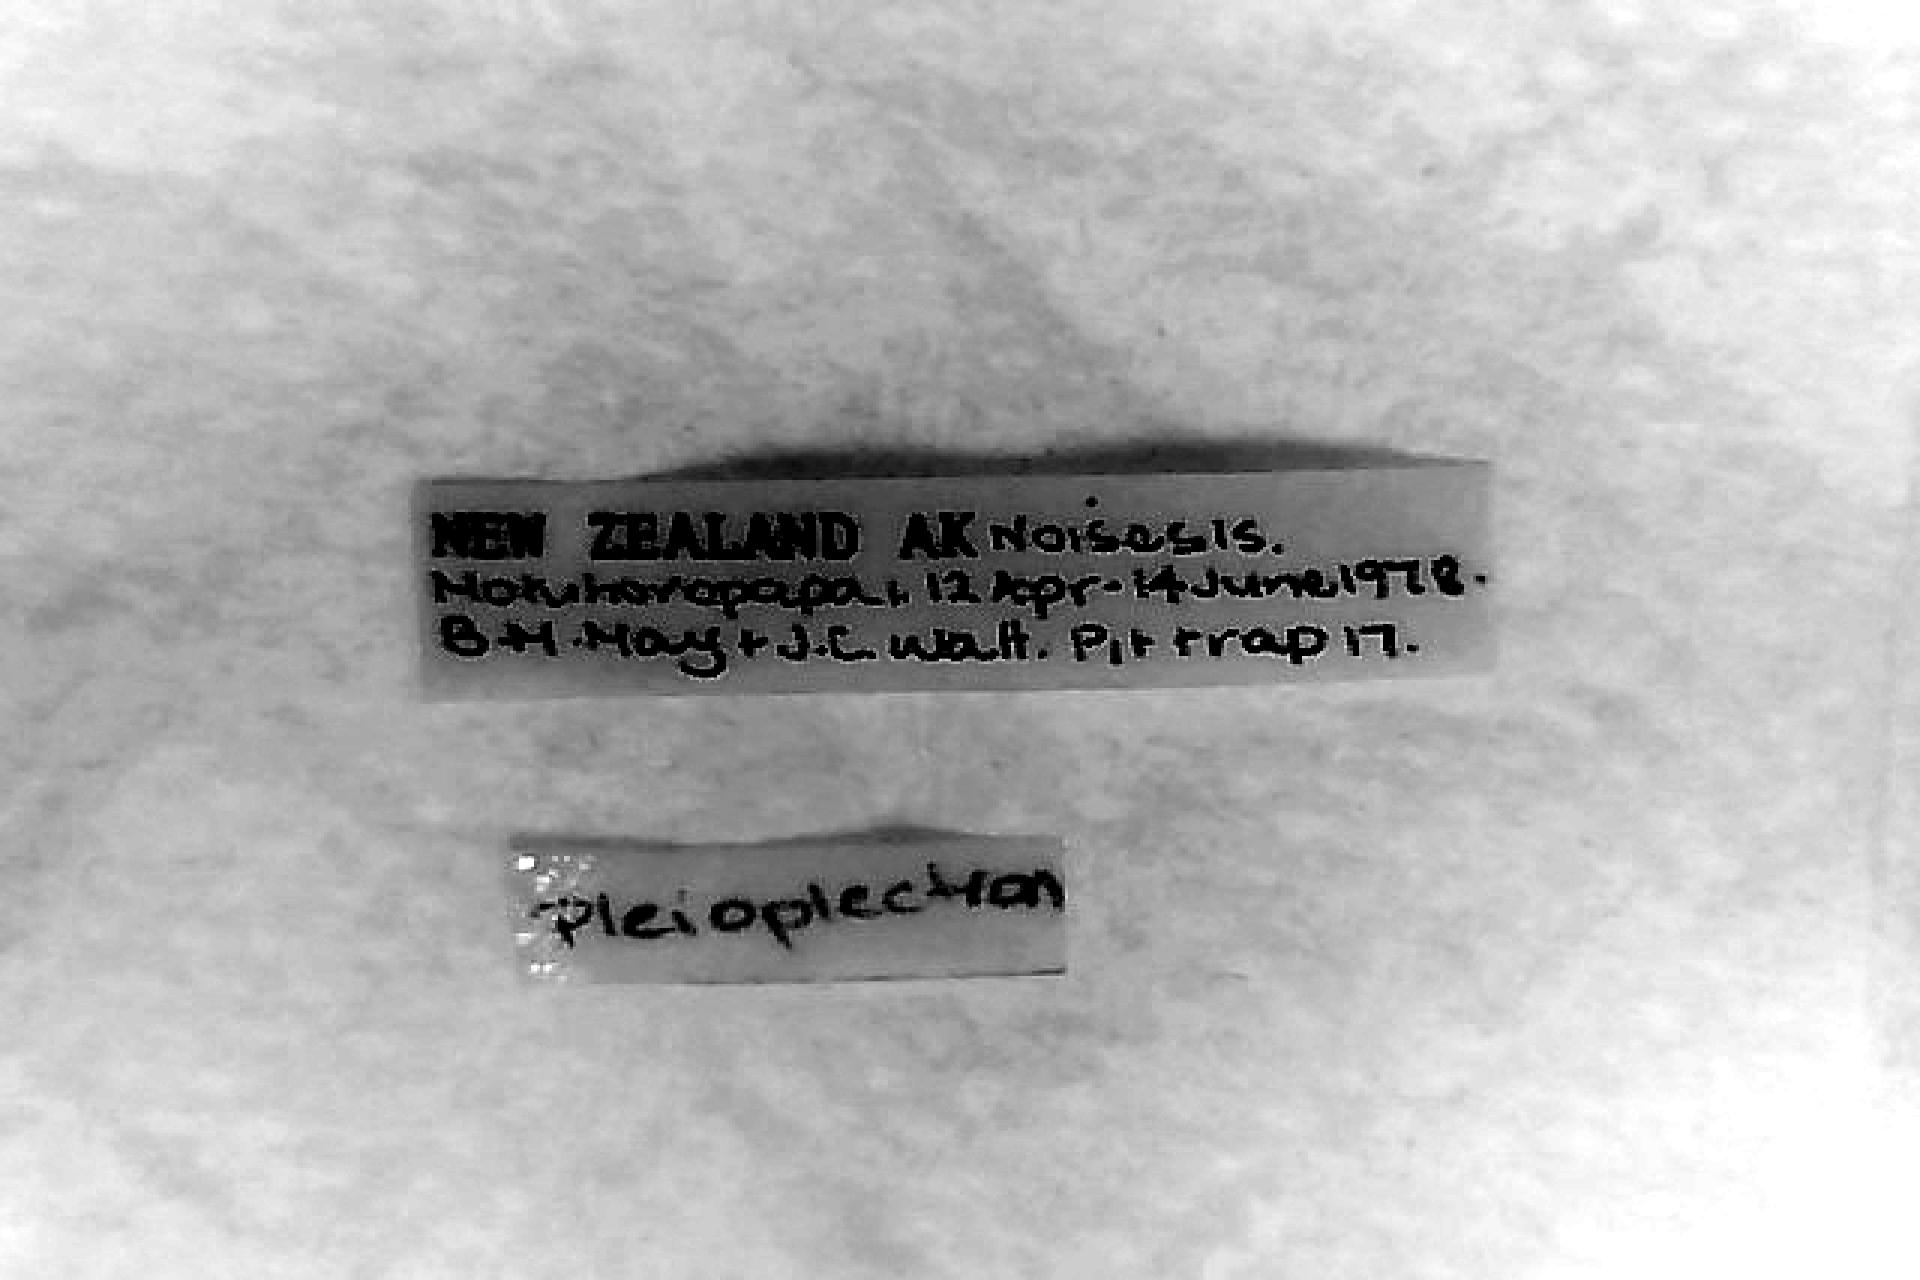 NEW ZEALAND AK Noises Is.
Motuhoropapa, 12 Apr-14 June 1978.
B.M. May + J.C. Watt. Pit trap 17.
Pleioplectron